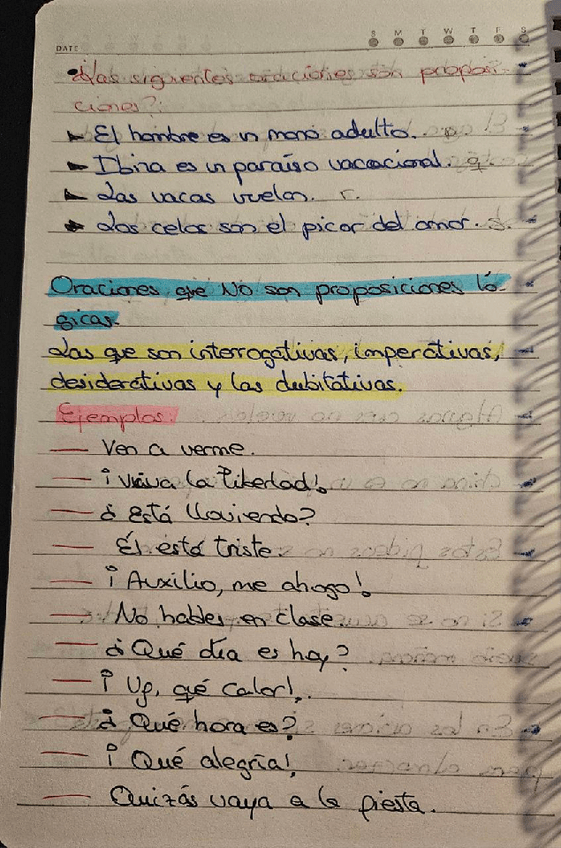 DATE S M T W T F S
•Las siguientes oraciones son proposi-
ciones?:
El hombre es un mono adulto. p.
Ibiza es un paraíso vacacional. q.
Las vacas vuelan. r.
Los celos son el picor del amor. s.
Oraciones que No son proposiciones ló-
gicas.
Las que son interrogativas, imperativas,
desiderativas y las dubitativas.
Ejemplos:
— Ven a verme.
— ¡Viva la libertad!
— ¿Está lloviendo?
— Él está triste.
— ¡Auxilio, me ahogo!
— No hables en clase.
— ¿Qué día es hoy?
— ¡Uf, qué calor!
— ¿Qué hora es?
— ¡Qué alegría!
— Quizás vaya a la fiesta.